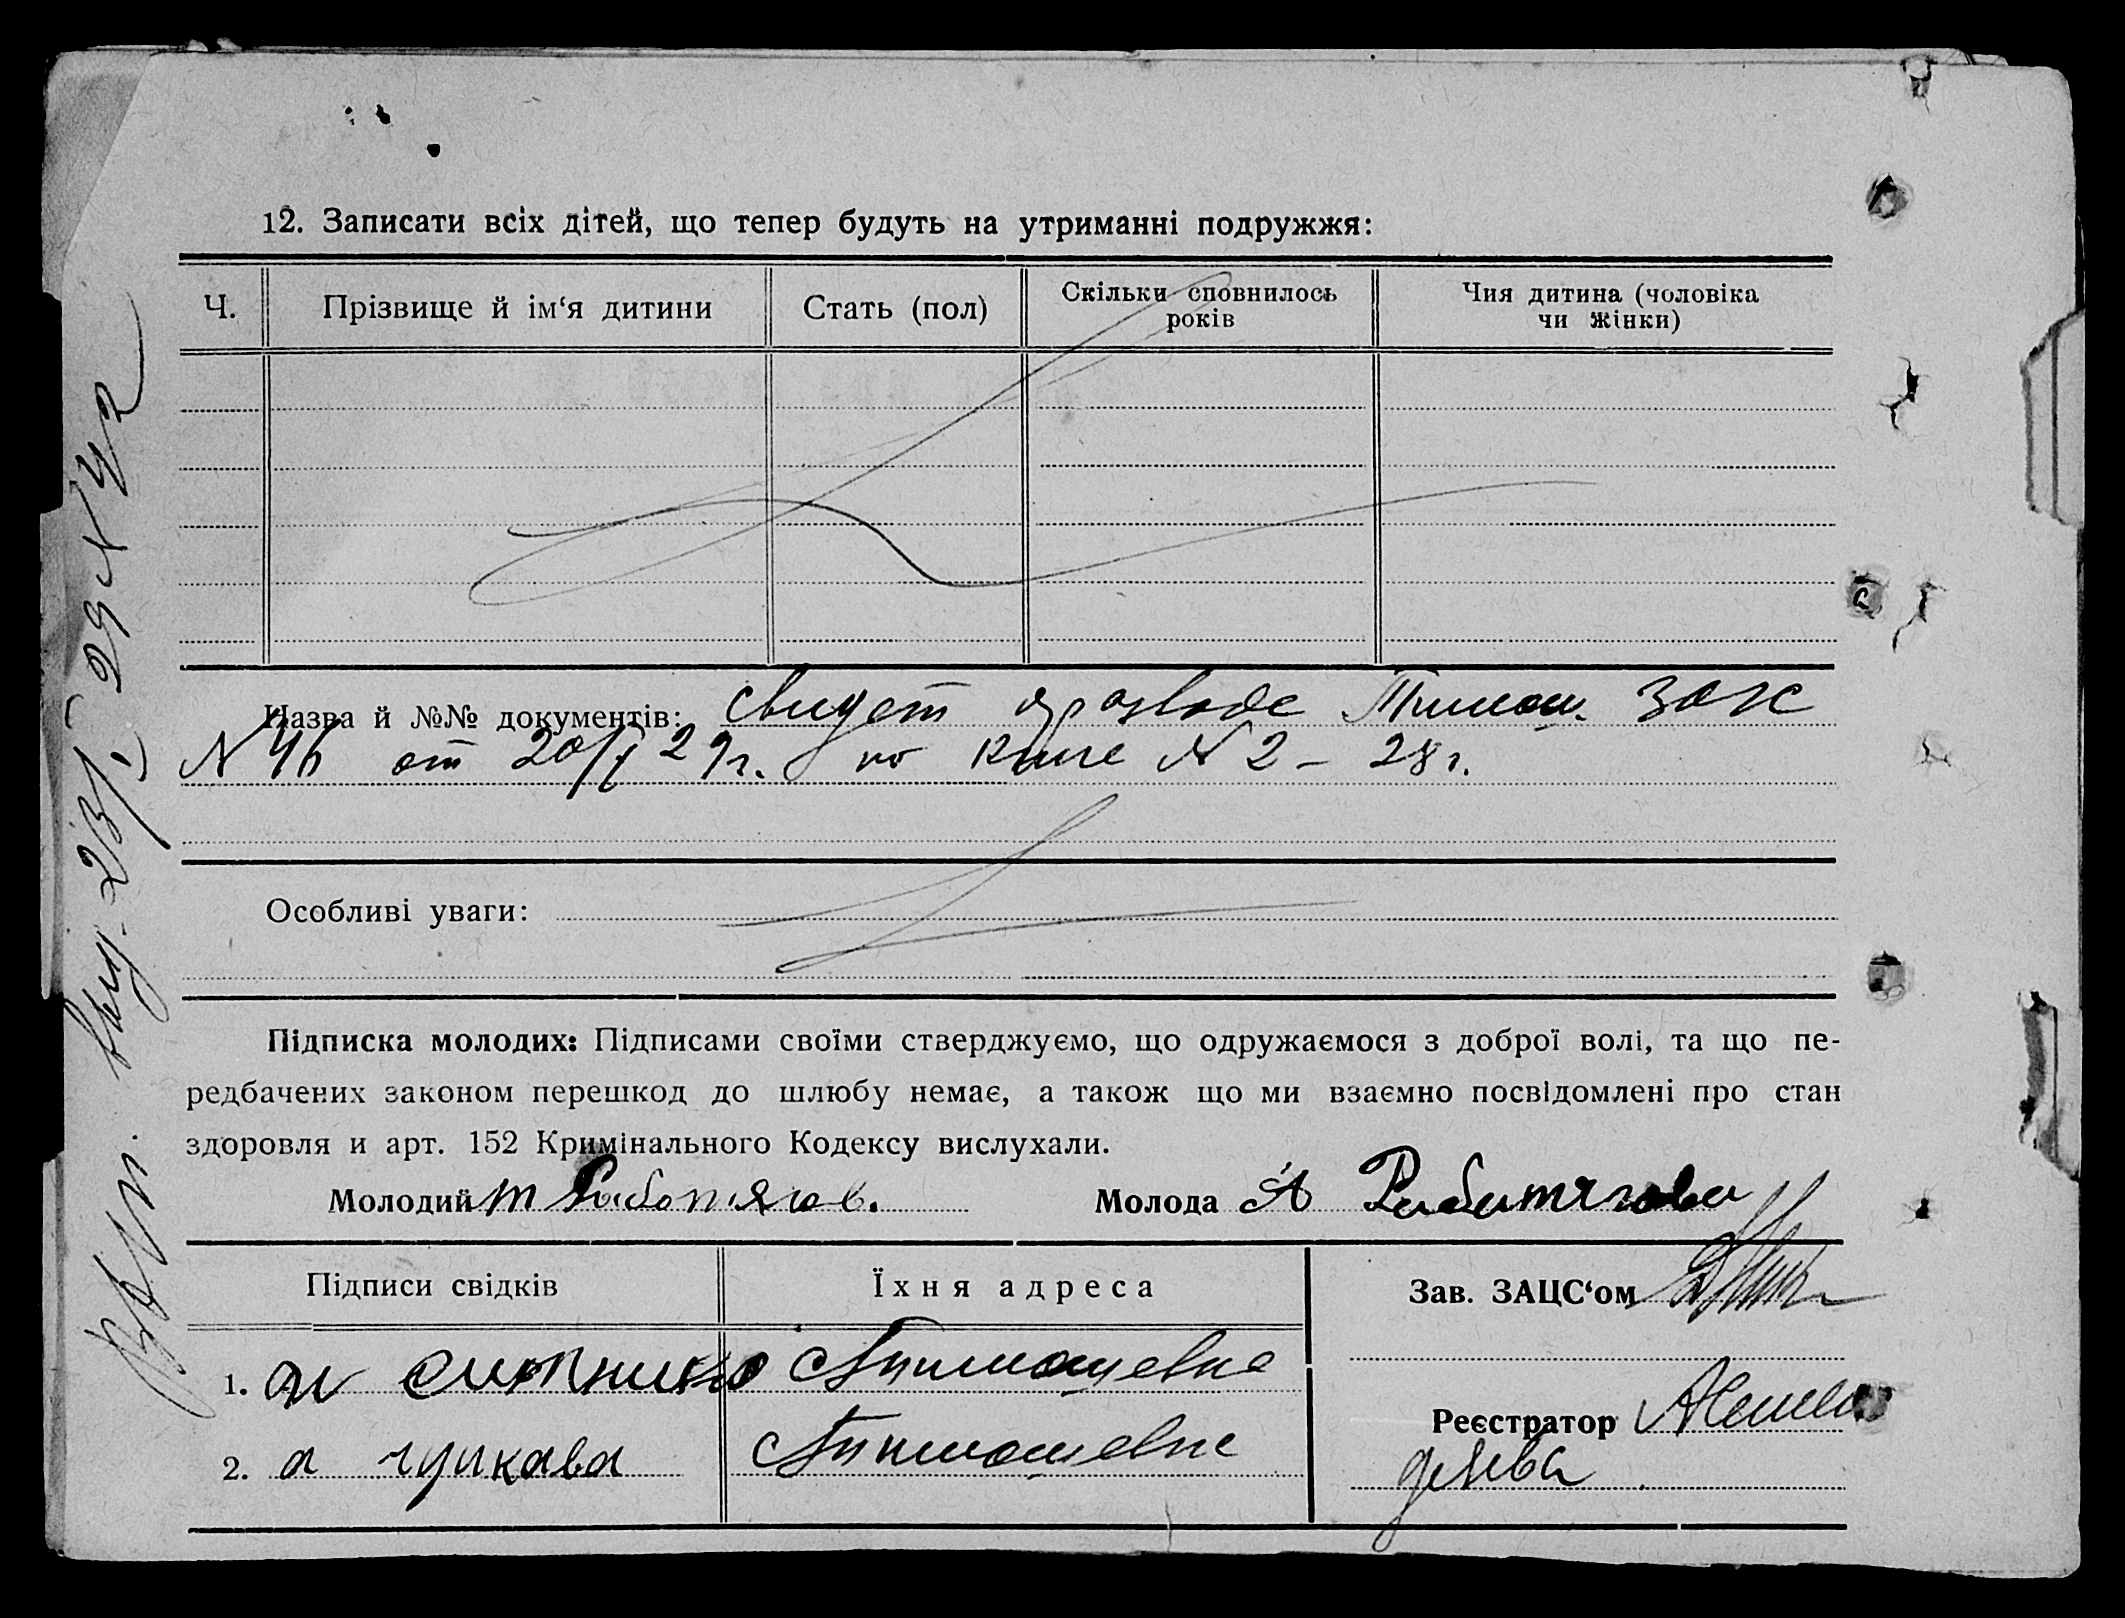 12. Записати всіх дітей, що тепер будуть на утриманні подружжя:
Ч. Прізвище й ім‘я дитини Стать (пол) Скільки сповнилось років Чия дитина (чоловіка чи жінки)
Назва й №№ документів: свидет о розводе Тимош. ЗАК
N 46 от 20/I 29г. по книге N 2 – 28г.
Особливі уваги:
Підписка молодих: Підписами своїми стверджуємо, що одружаємося з доброї волі, та що пе-
редбачених законом перешкод до шлюбу немає, а також що ми взаємно посвідомлені про стан
здоровля и арт. 152 Кримінального Кодексу вислухали.
Молодий Т Работягов. Молода А Работягова
Підписи свідків Їхня адреса Зав. ЗАЦС‘ом
1. Ситнико с Тимошевке
Реєстратор
2. а гулкава с Тимошевке
29 N 42